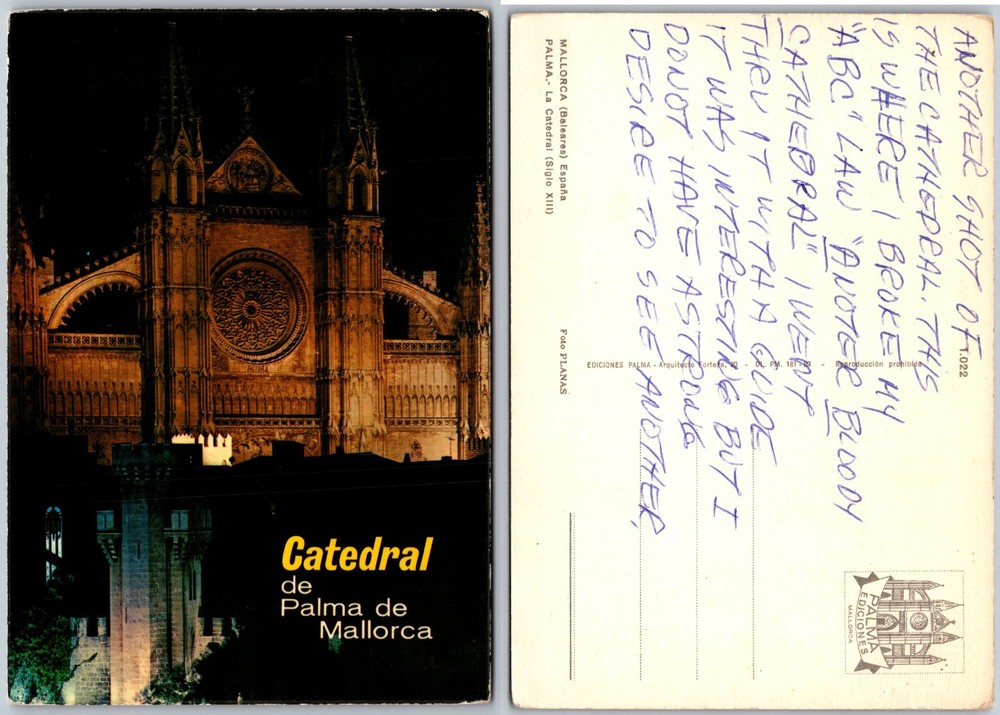 Catedral
de
Palma de
Mallorca
ANOTHER SHOT OF
THE CATHEDRAL. THIS
IS WHERE I BROKE MY
"ABC" LAW "ANOTER BLOODY
CATHEDRAL" I WENT
THRU IT WITH A GUIDE
IT WAS INTERESTING BUT I
DO NOT HAVE A STRONG
DESIRE TO SEE ANOTHER.
MALLORCA (Baleares) España
PALMA.- La Catedral (Siglo XIII)
Foto PLANAS
EDICIONES PALMA - Arquitecto Forteza, - DL. PM. - Reproducción prohibida
1.022
PALMA
EDICIONES
MALLORCA